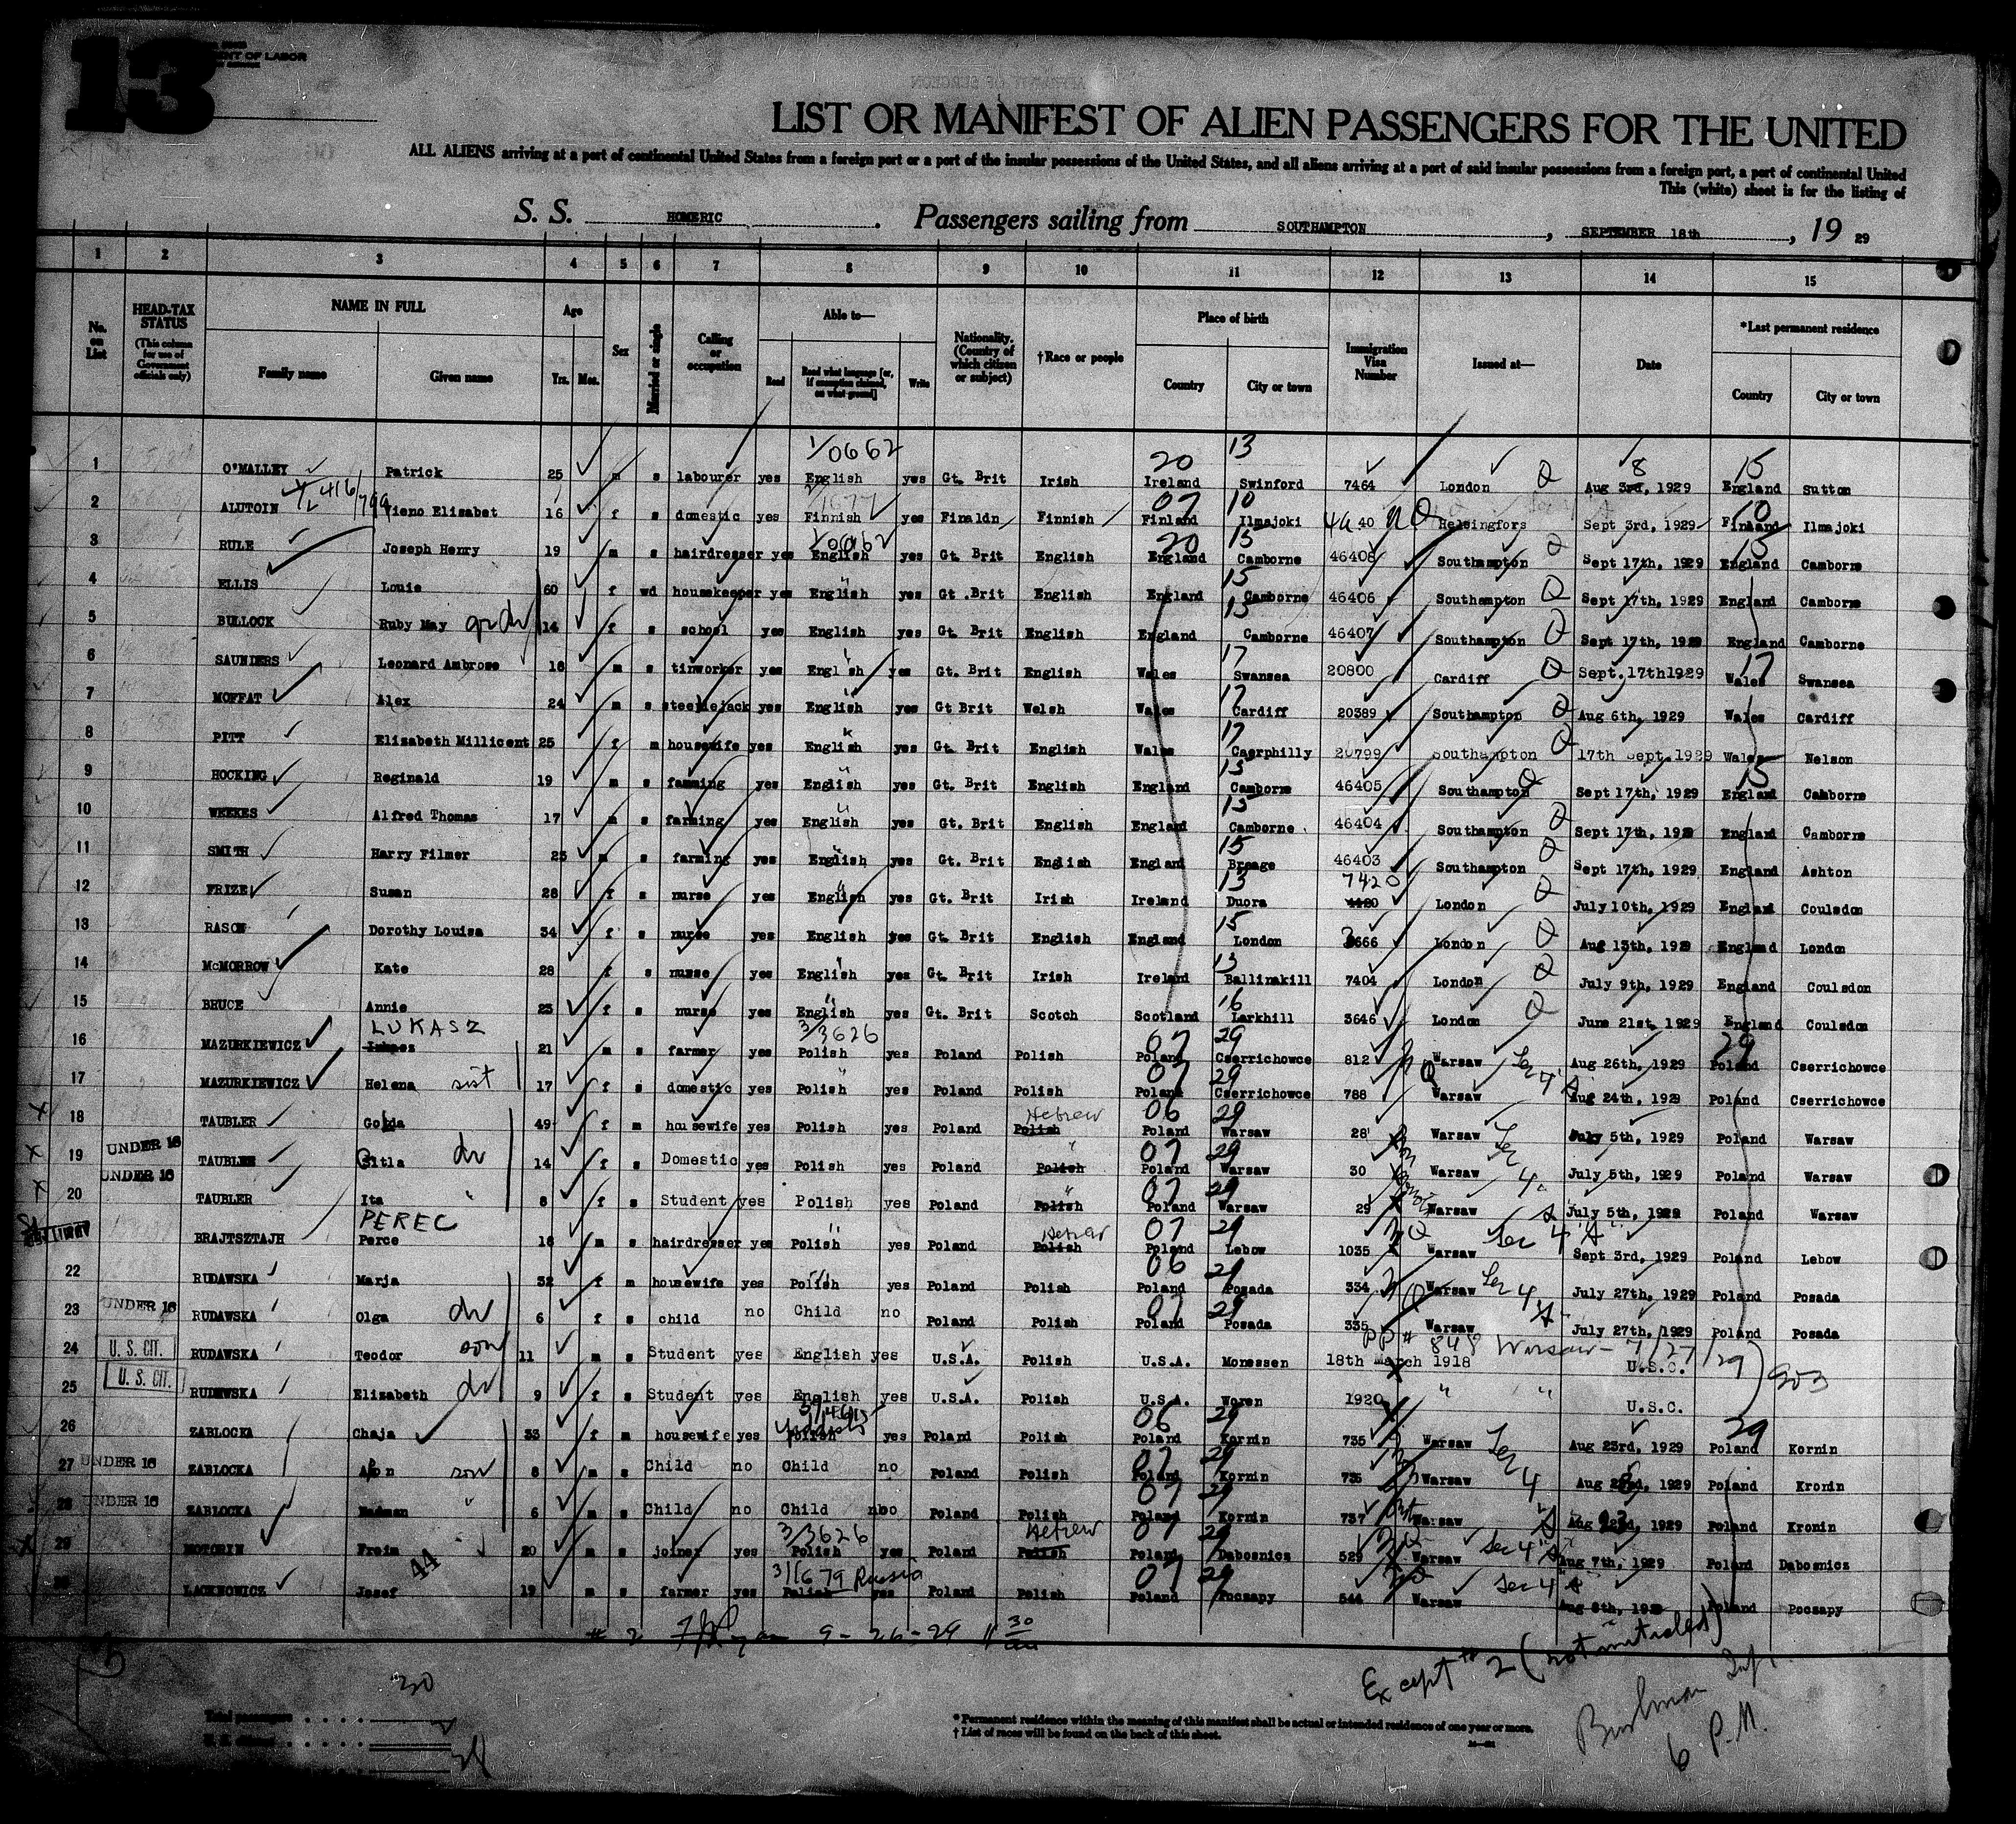 13
LIST OR MANIFEST OF ALIEN PASSENGERS FOR THE UNITED
ALL ALIENS arriving at a port of continental United States from a foreign port or a port of the insular possessions of the United States, and all aliens arriving at a port of said insular possessions from a foreign port, a port of continental United
This (white) sheet is for the listing of
S. S. HOMERIC. Passengers sailing from SOUTHAMPTON, SEPTEMBER 18th, 19 29
1 2 3 4 5 6 7 8 9 10 11 12 13 14 15
No. on List HEAD-TAX STATUS (This column for use of Government officials only) NAME IN FULL Family name Given name Age Yrs. Mos. Sex Married or single Calling or occupation Able to— Read Read what language [or, if exemption claimed, on what ground] Write Nationality. (Country of which citizen or subject) †Race or people Place of birth Country City or town Immigration Visa Number Issued at— Date *Last permanent residence Country City or town
1 O'MALLEY Patrick 25 m s labourer yes English yes Gt. Brit Irish Ireland Swinford 7464 London Q Aug 3rd, 1929 England Sutton
2 ALUTOIN Tieno Elisabet 16 f s domestic yes Finnish yes Finaldn Finnish Finland Ilmajoki 40 Helsingfors Sept 3rd, 1929 Finland Ilmajoki
3 RULE Joseph Henry 19 m s hairdresser yes English yes Gt. Brit English England Camborne 46408 Southampton Q Sept 17th, 1929 England Camborne
4 ELLIS Louie 60 f wd housekeeper yes English yes Gt .Brit English England Camborne 46406 Southampton Q Sept 17th, 1929 England Camborne
5 BULLOCK Ruby May 14 f s school yes English yes Gt. Brit English England Camborne 46407 Southampton Q Sept 17th, 1929 England Camborne
6 SAUNDERS Leonard Ambrose 18 m s tinworker yes English yes Gt. Brit English Wales Swansea 20800 Cardiff Q Sept.17th1929 Wales Swansea
7 MOFFAT Alex 24 m s steeplejack yes English yes Gt Brit Welsh Wales Cardiff 20389 Southampton Q Aug 6th, 1929 Wales Cardiff
8 PITT Elisabeth Millicent 25 f m housewife yes English yes Gt. Brit English Wales Caerphilly 20799 Southampton Q 17th Sept.1929 Wales Nelson
9 HOCKING Reginald 19 m s farming yes English yes Gt. Brit English England Camborne 46405 Southampton Q Sept 17th, 1929 England Camborne
10 WEEKES Alfred Thomas 17 m s farming yes English yes Gt. Brit English England Camborne 46404 Southampton Q Sept 17th, 1929 England Camborne
11 SMITH Harry Filmer 25 m s farming yes English yes Gt. Brit English England Breage 46403 Southampton Q Sept 17th, 1929 England Ashton
12 FRIZE Susan 28 f s nurse yes English yes Gt. Brit Irish Ireland Duora 7420 London Q July 10th, 1929 England Coulsdon
13 RASON Dorothy Louisa 34 f s nurse yes English yes Gt. Brit English England London London Q Aug 13th, 1929 England London
14 McMORROW Kate 28 f s nurse yes English yes Gt. Brit Irish Ireland Ballinakill 7404 London Q July 9th, 1929 England Coulsdon
15 BRUCE Annie 25 f s nurse yes English yes Gt. Brit Scotch Scotland Larkhill 3646 London Q June 21st, 1929 England Coulsdon
LUKASZ 3/3626
16 MAZURKIEWICZ 21 m s farmer yes Polish yes Poland Polish Poland Cserrichowce 812 Warsaw Sec 4 Aug 26th, 1929 Poland Cserrichowce
17 MAZURKIEWICZ Helena sist 17 f s domestic yes Polish yes Poland Polish Poland Cserrichowce 788 Warsaw Aug 24th, 1929 Poland Cserrichowce
18 TAUBLER Golda 49 f m housewife yes Polish yes Poland Hebrew Polish Poland Warsaw 28 Warsaw July 5th, 1929 Poland Warsaw
19 UNDER 16 TAUBLER Gitla 14 f s Domestic yes Polish yes Poland Polish Poland Warsaw 30 Warsaw July 5th, 1929 Poland Warsaw
20 UNDER 16 TAUBLER Ita 8 f s Student yes Polish yes Poland Polish Poland Warsaw 29 Warsaw July 5th, 1929 Poland Warsaw
PEREC
BRAJTSZTAJH Perce 18 m s hairdresser yes Polish yes Poland Hebrew Polish Poland Lebow 1035 Warsaw Sec 4 "A" Sept 3rd, 1929 Poland Lebow
22 RUDAWSKA Marja 32 f m housewife yes Polish yes Poland Polish Poland Posada 334 Warsaw Sec 4 July 27th, 1929 Poland Posada
23 UNDER 16 RUDAWSKA Olga 6 f s child no Child no Poland Polish Poland Posada 335 Warsaw July 27th, 1929 Poland Posada
24 U. S. CIT. RUDAWSKA Teodor son 11 m s Student yes English yes U.S.A. Polish U.S.A. Monessen 18th March 1918 PP# 848 Warsaw - 7/27/29 U.S.C.
25 U. S. CIT. RUDEWSKA Elizabeth 9 f s Student yes English yes U.S.A. Polish U.S.A. Woren 1920 U.S.C.
26 ZABLOCKA Chaja 33 f m housewife yes Yiddish yes Poland Polish Poland Kornin 735 Warsaw Sec 4 Aug 23rd, 1929 Poland Kornin
27 UNDER 16 ZABLOCKA son 8 m s Child no Child no Poland Polish Poland Kornin 736 Warsaw Aug 1929 Poland Kronin
28 UNDER 16 ZABLOCKA 6 m s Child no Child no Poland Polish Poland Kornin 737 Warsaw Aug 1929 Poland Kronin
29 MOTORIN Froim 20 m s joiner yes 3/3626 Polish yes Poland Hebrew Polish Poland Dabosnics 529 Warsaw Sec 4 "A" Aug 7th, 1929 Poland Dabosnics
LACHNOWICZ Josef 19 m s farmer yes Russia Polish yes Poland Polish Poland Pocsapy 544 Warsaw Sec 4 "A" Aug 8th, 1929 Poland Pocsapy
44
# 2 9-26-29 11 30
Except # 2 (not initialed)
30
Total passengers
* Permanent residence within the meaning of this manifest shall be actual or intended residence of one year or more.
† List of races will be found on the back of this sheet.
6 P.M.